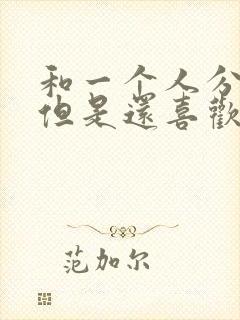 和一个人分
但是還喜歡
范加尔